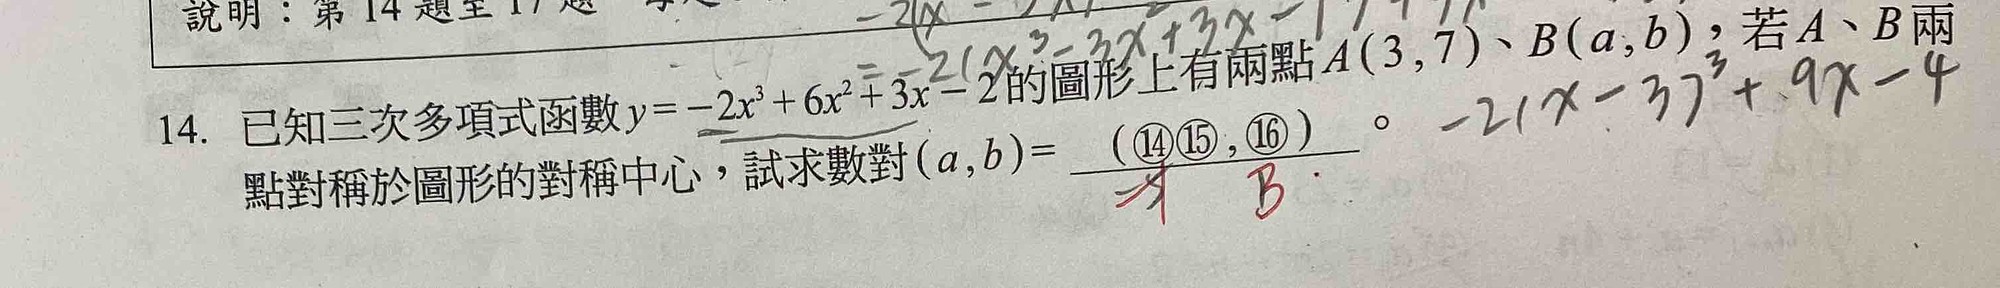 說明：第 14 題至 17 題
-2(x³-3x²+3x-1)
14. 已知三次多項式函數 y=-2x³+6x²+3x-2 的圖形上有兩點 A(3,7)、B(a,b)，若 A、B 兩
點對稱於圖形的對稱中心，試求數對(a,b)= (⑭⑮,⑯) 。
-2(x-3)³+9x-4
B